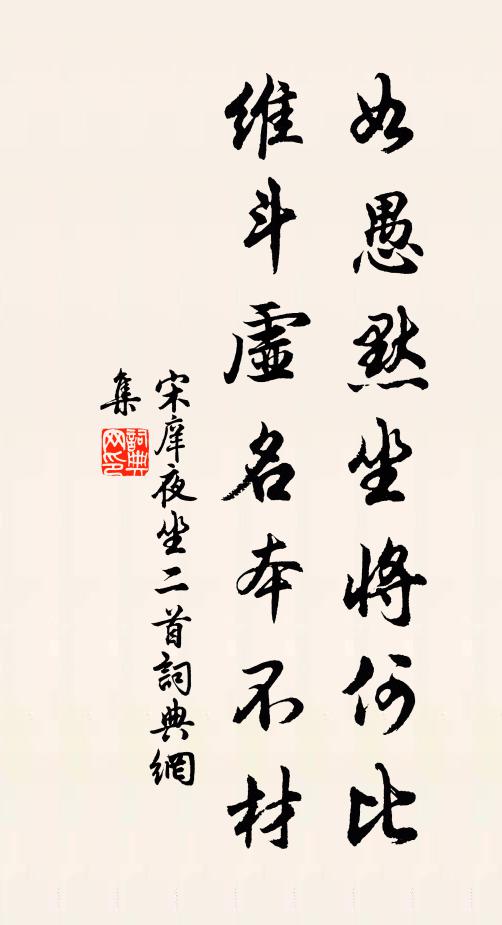 如愚默坐將何比
維斗虛名本不材
宋庠夜坐二首詞典網
集
詞典
网印